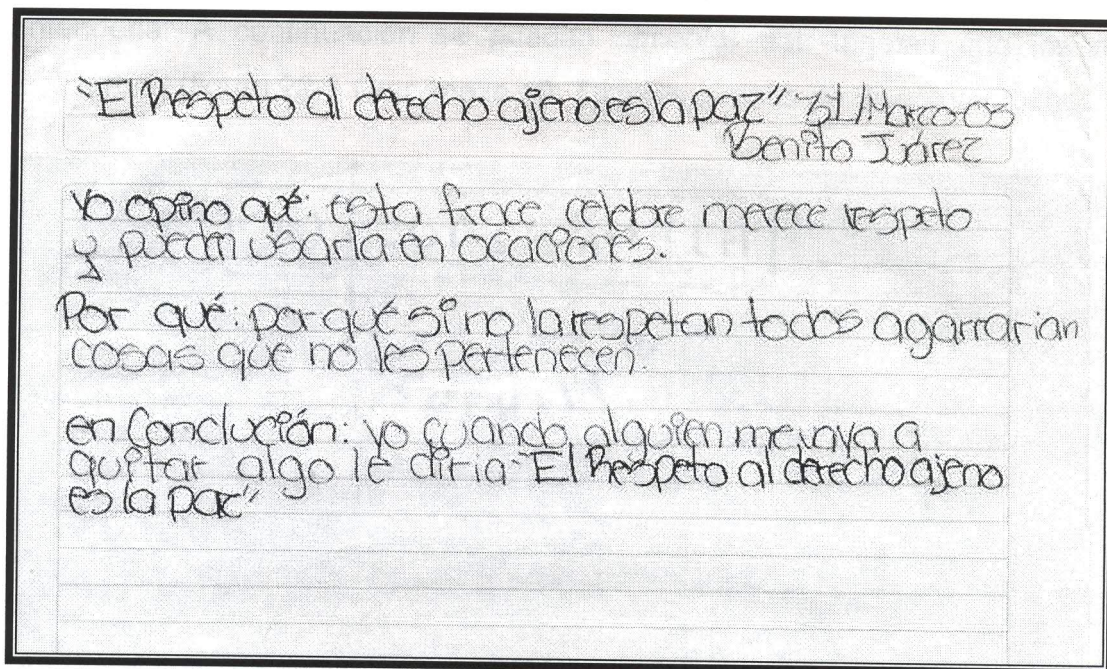 "El Respeto al derecho ajeno es la paz" 31/Marzo 03
Benito Juárez
Yo opino qué: esta frace celebre merece respeto
y pueden usarla en ocaciones.
Por qué: por qué si no la respetan todos agarrarian
cosas que no les pertenecen.
en Conclución: yo cuando alguien me vaya a
quitar algo le diria "El Respeto al derecho ajeno
es la paz"